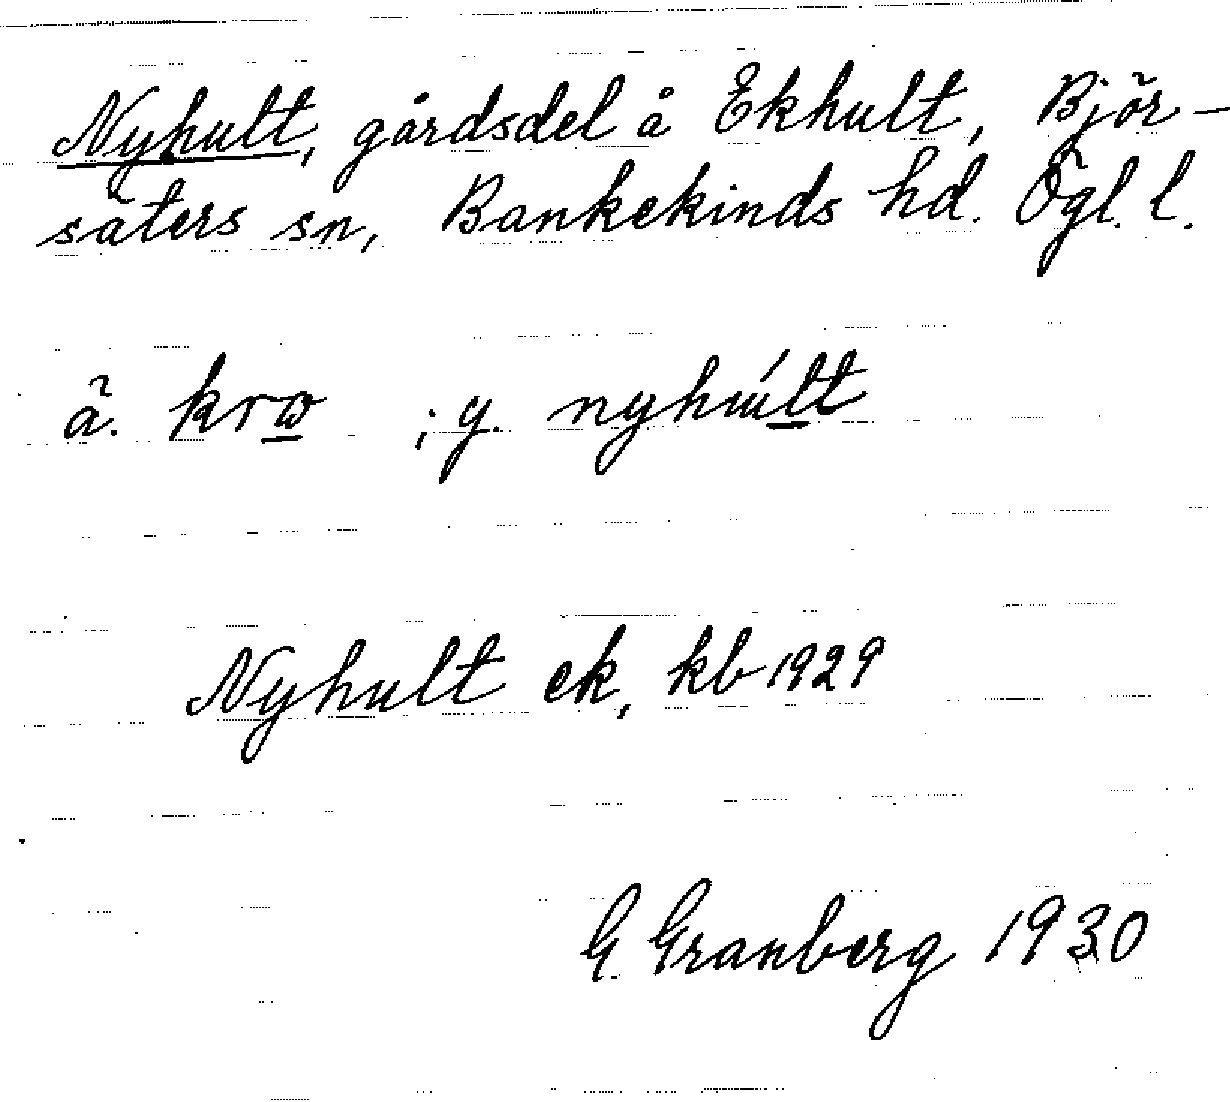 Nyhult, gårdsdel å Ekhult, Björ-
säters sn, Bankekinds hd. Ögl. l.
ä. krω ; y. nyhúlt
Nyhult ek, kb 1929
G. Granberg 1930